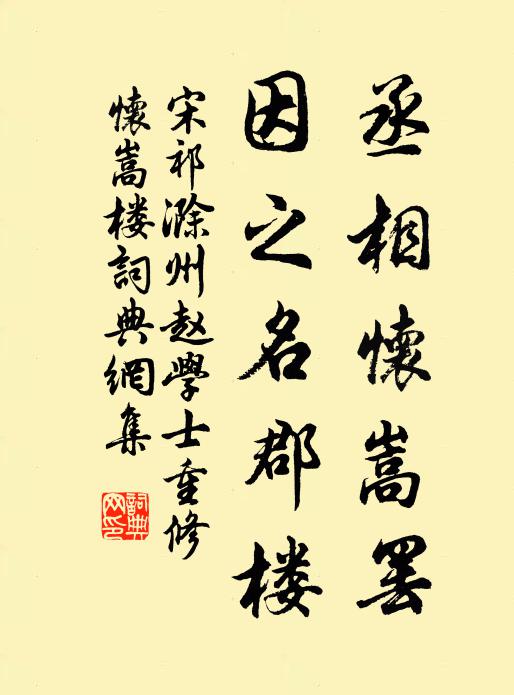 丞相懷嵩罢
因之名郡楼
宋祁滁州赵學士重修
懷嵩楼詞典網集
詞典网印